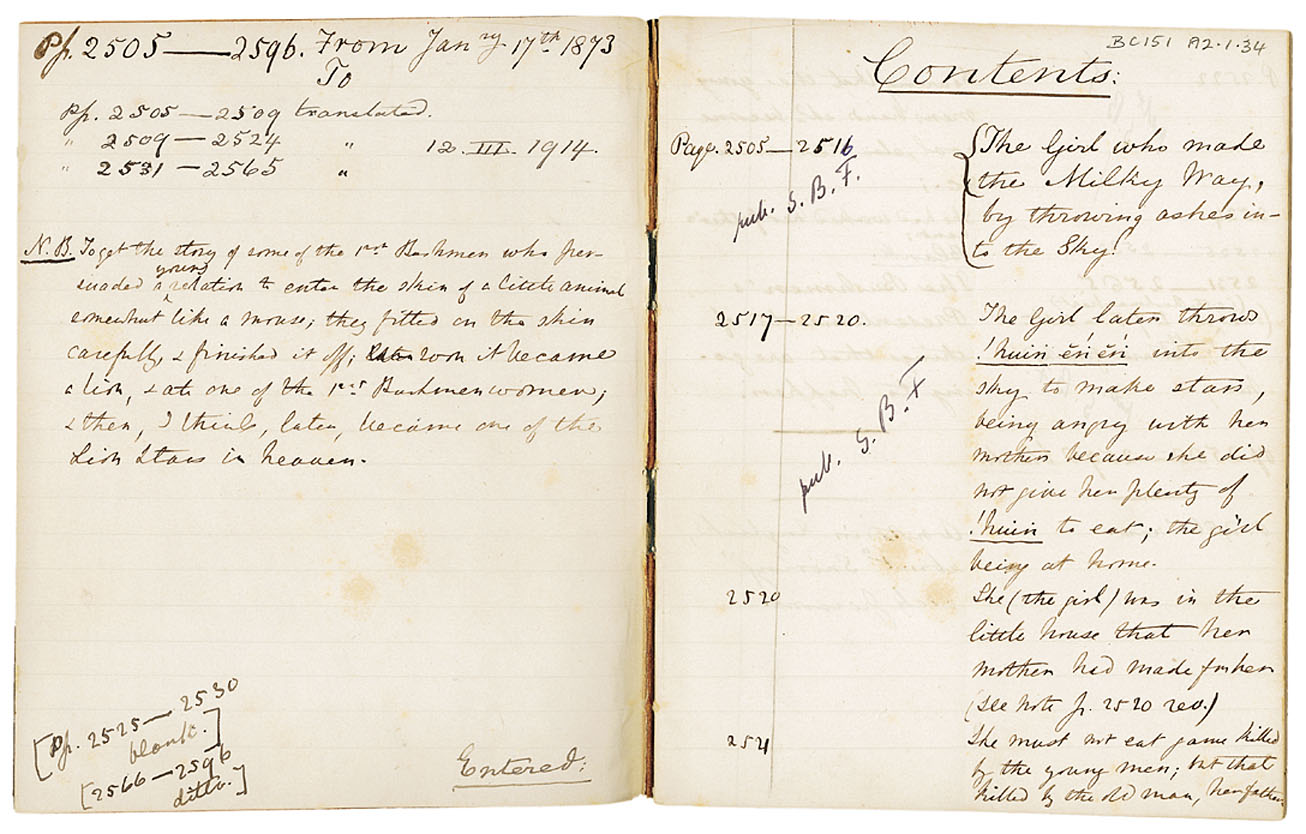 Pp. 2505 — 2596. From Janry 17th 1873
To
Pp. 2505 — 2509 translated.
" 2509 — 2524 " 12. III. 1914.
" 2531 — 2565 "
N.B. To get the story of some of the 1rst Bushmen who per-
suaded a young relation to enter the skin of a little animal
somewhat like a mouse; they fitted on the skin
carefully, & finished it off; later when it became
a lion, & ate one of the 1rst Bushmen women;
& then, I think, later, became one of the
Lion Stars in heaven.
[Pp. 2525 — 2530
blank.]
[2566 — 2596
ditto.]
Entered:
BC151 A2.1.34
Contents:
Page. 2505 — 2516 {The Girl who made
the Milky Way,
pub. S.B.F. by throwing ashes in-
to the Sky.
2517 — 2520. The Girl later throws
!huin ĕń ĕń into the
sky to make stars,
being angry with her
pub. S.B.F mother because she did
not give her plenty of
!huin to eat; the girl
being at home.
2520 She (the girl) was in the
little house that her
mother had made for her
(see note p. 2520 rev.)
2521 She must not eat game killed
by the young men; but that
killed by the old man, her father